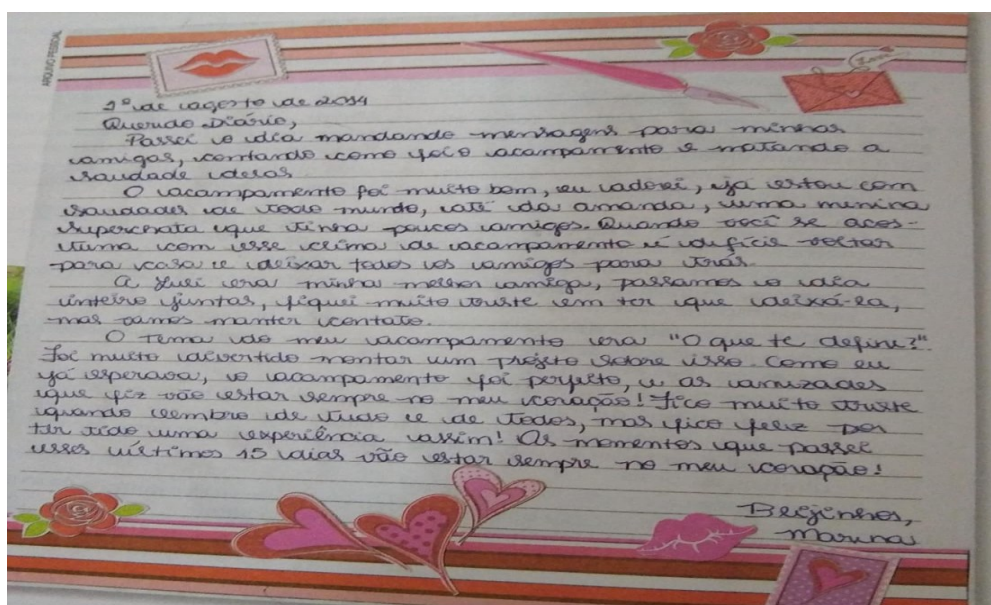 1º de agosto de 2014
Querido Diário,
Passei o dia mandando mensagens para minhas
amigas, contando como foi o acampamento e matando a
saudade delas.
O acampamento foi muito bom, eu adorei, já estou com
saudades de todo mundo, até da amanda, uma menina
superchata que tinha poucos amigos. Quando você se acos-
tuma com esse clima de acampamento é difícil voltar
para casa e deixar todos os amigos para trás.
A Juli era minha melhor amiga, passamos o dia
inteiro juntas, fiquei muito triste em ter que deixá-la,
mas vamos manter contato.
O tema do meu acampamento era "O que te define?".
Foi muito divertido montar um projeto sobre isso. Como eu
já esperava, o acampamento foi perfeito, e as amizades
que fiz vão estar sempre no meu coração! Fico muito triste
quando lembro de tudo e de todos, mas fico feliz por
ter tido uma experiência assim! Os momentos que passei
esses últimos 15 dias vão estar sempre no meu coração!
Beijinhos,
Marina